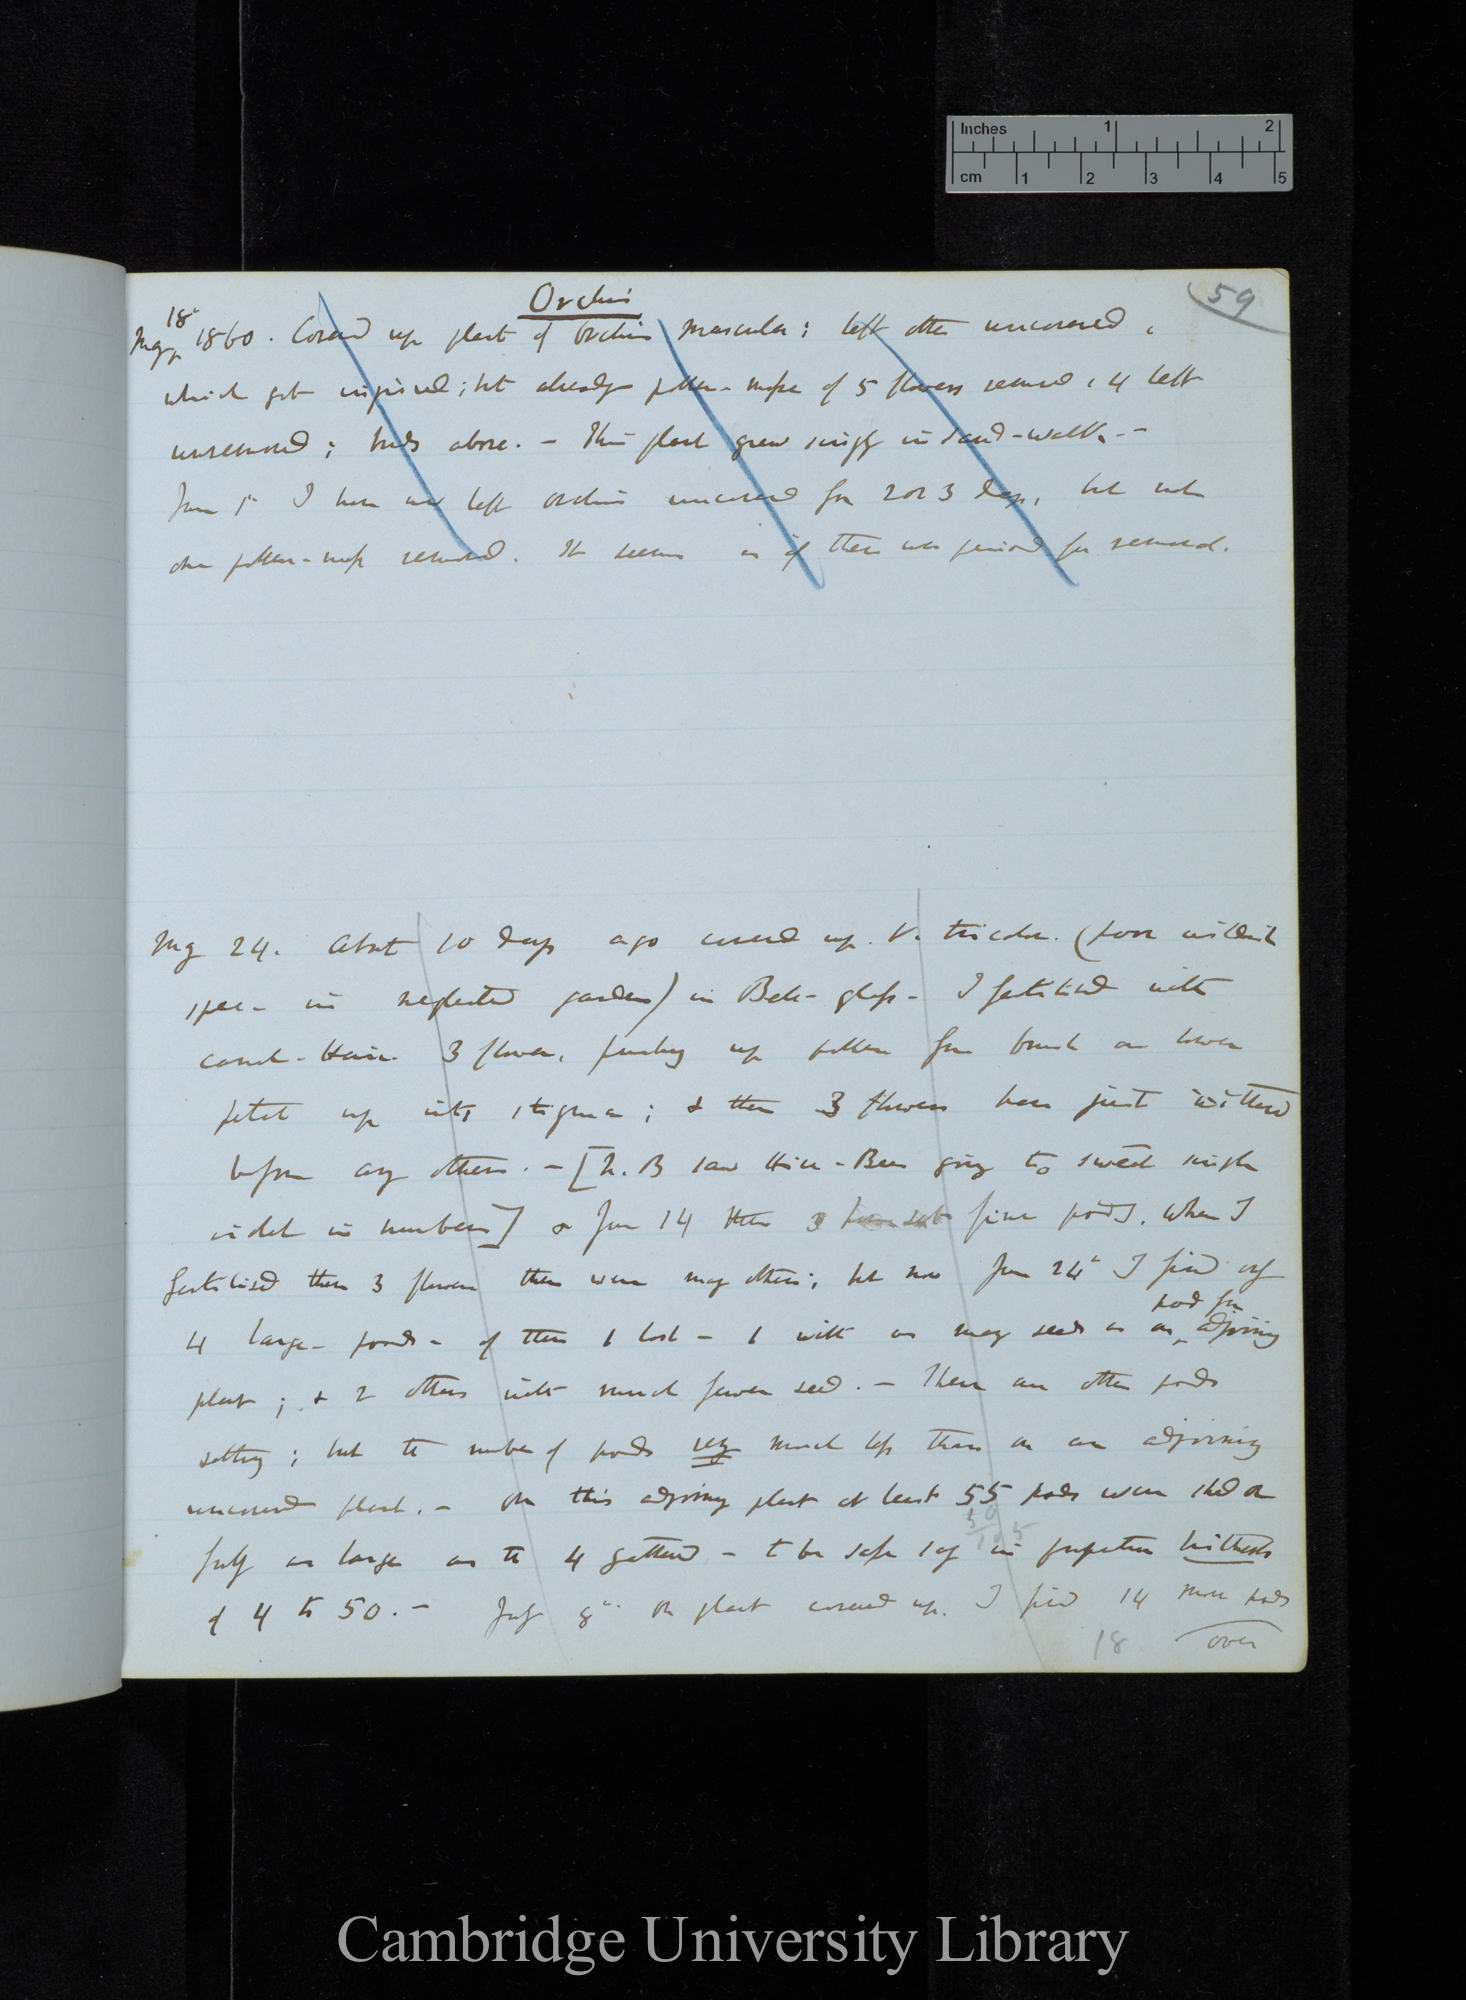 Inches 1 2
cm 1 2 3 4 5
59
Orchis
May 18th 1860. Covered up plant of Orchis mascula; left other uncovered,
which got injured; but already pollen-masses of 5 flowers removed, 4 left
unremoved; buds above. — This plant grew singly in Sand-walk. —
June 5th I have now left Orchis uncovered for 2 or 3 days, but not
one pollen-mass removed. It seems as if there was period for removal.
May 24. About 10 days ago covered up V. tricolor. (poor wildish
spec- in neglected garden) in Bell-glass - I fertilised with
camel-Hair 3 flowers, pushing up pollen from brush on lower
petal up into stigma; & these 3 flowers have just withered
before any others. — [ B saw Hive-Bees going to sweet single
violet in numbers] & June 14 these 3 have set fine pods. When I
fertilised these 3 flowers there were many others; but now June 24th I find only
4 large pods - of these 1 lost - 1 with as many seeds as an pod from adjoining
plant; & 2 others with much fewer seed. — There are other pods
setting; but the number of pods very much less than on an adjoining
uncovered plant. — On this adjoining plant at least 55 pods were shed or
50
fully as large as the 4 gathered — to be safe say in proportion hitherto
of 4 to 50. — July 8th. On plant covered up. I find 14 more pods
18 over
Cambridge University Library